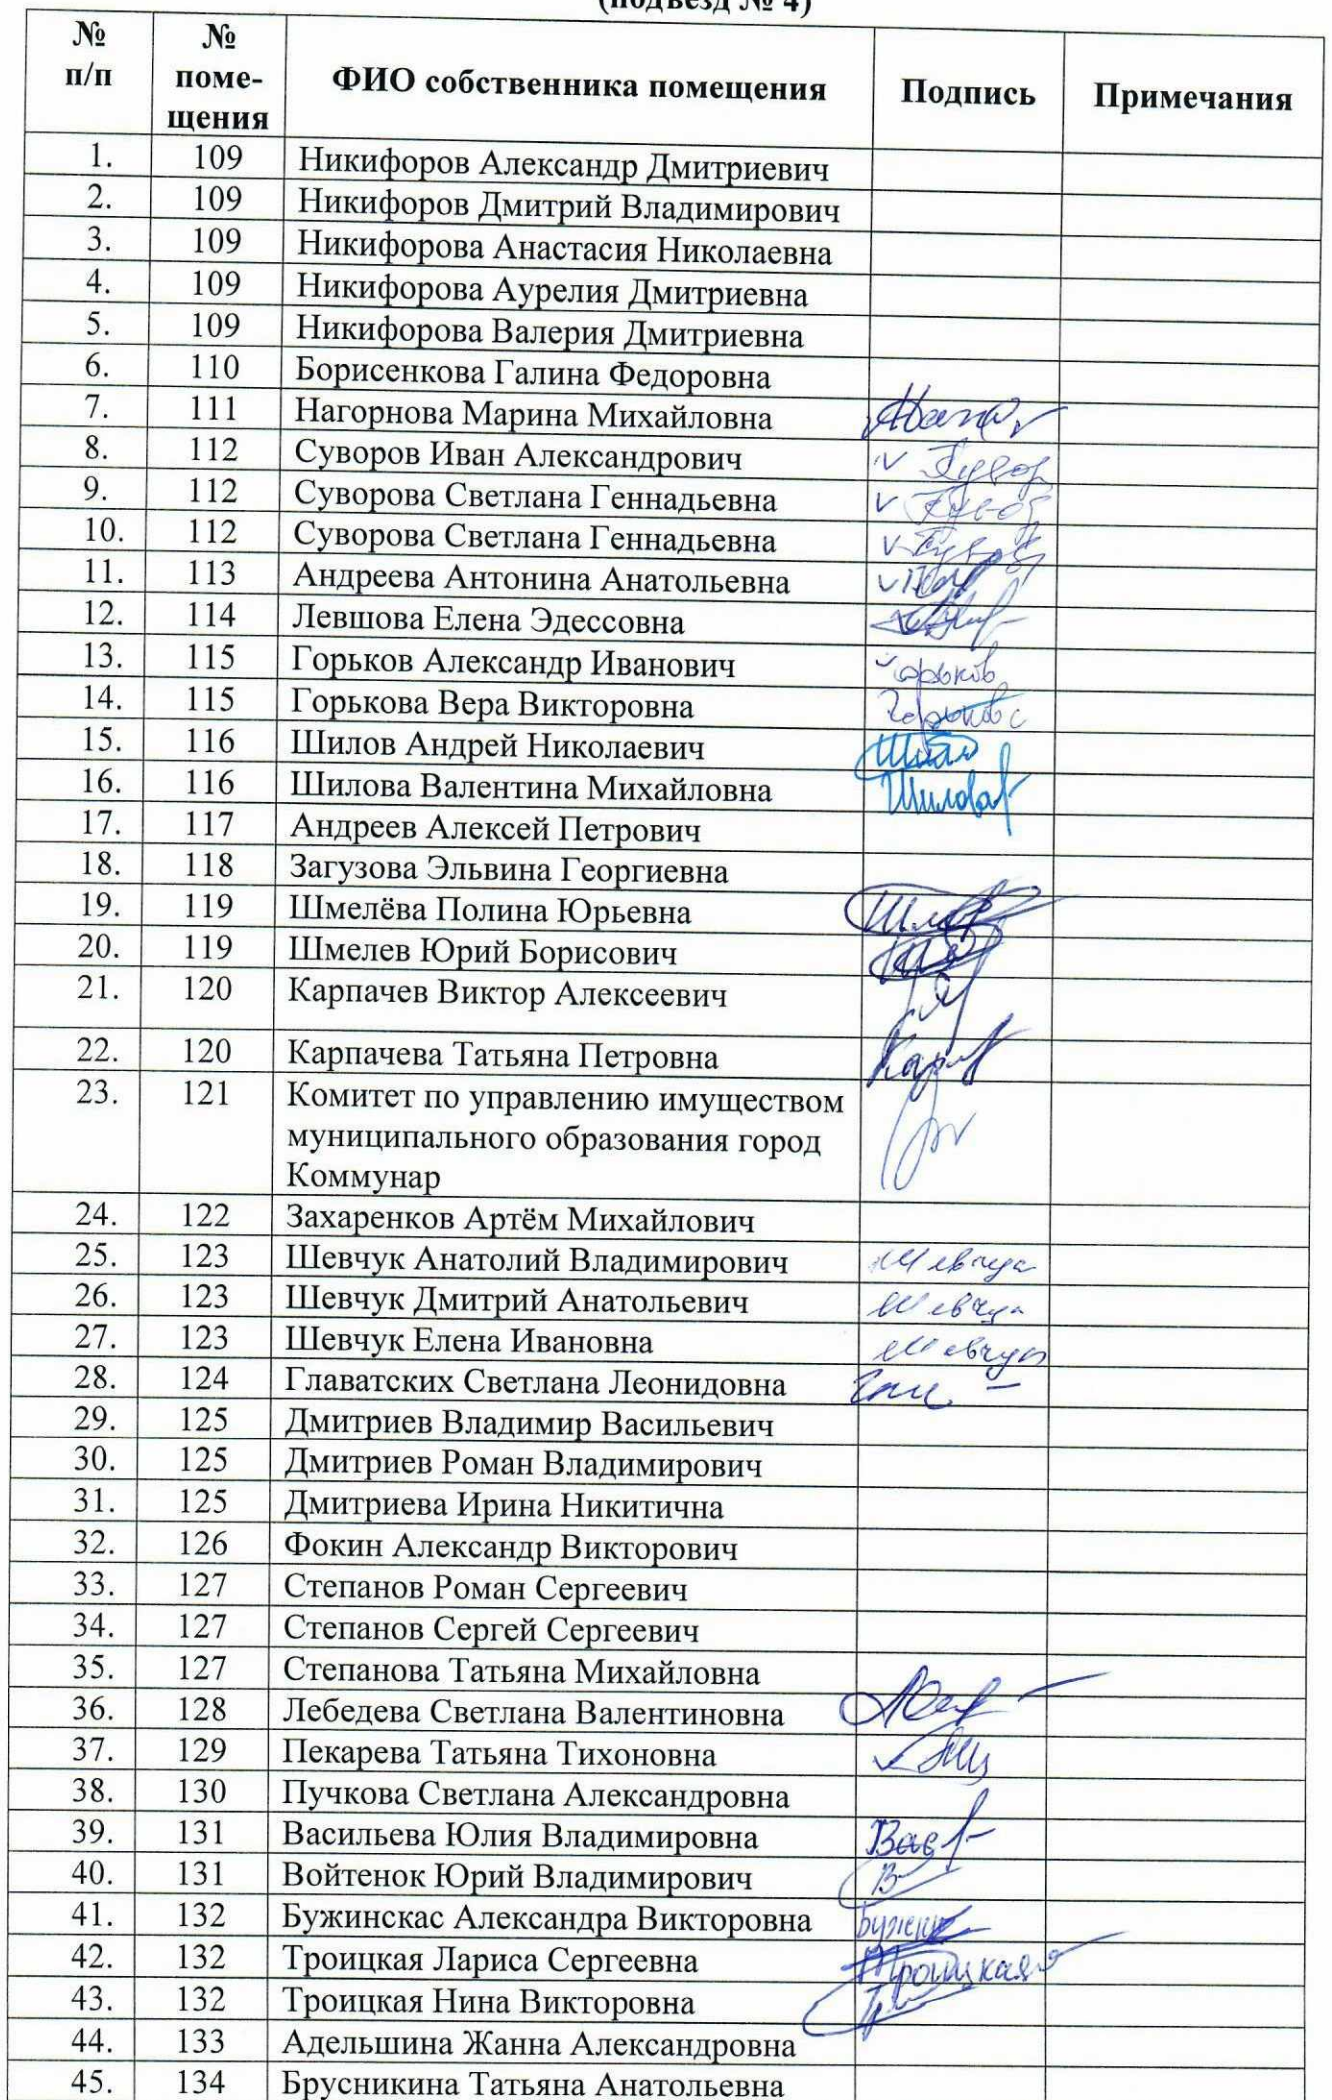 (подъезд № 4)
№ п/п № поме-щения ФИО собственника помещения Подпись Примечания
1. 109 Никифоров Александр Дмитриевич
2. 109 Никифоров Дмитрий Владимирович
3. 109 Никифорова Анастасия Николаевна
4. 109 Никифорова Аурелия Дмитриевна
5. 109 Никифорова Валерия Дмитриевна
6. 110 Борисенкова Галина Федоровна
7. 111 Нагорнова Марина Михайловна
8. 112 Суворов Иван Александрович
9. 112 Суворова Светлана Геннадьевна
10. 112 Суворова Светлана Геннадьевна
11. 113 Андреева Антонина Анатольевна
12. 114 Левшова Елена Эдессовна
13. 115 Горьков Александр Иванович Горьков
14. 115 Горькова Вера Викторовна
15. 116 Шилов Андрей Николаевич
16. 116 Шилова Валентина Михайловна Шилова
17. 117 Андреев Алексей Петрович
18. 118 Загузова Эльвина Георгиевна
19. 119 Шмелёва Полина Юрьевна
20. 119 Шмелев Юрий Борисович
21. 120 Карпачев Виктор Алексеевич
22. 120 Карпачева Татьяна Петровна
23. 121 Комитет по управлению имуществом
муниципального образования город
Коммунар
24. 122 Захаренков Артём Михайлович
25. 123 Шевчук Анатолий Владимирович
26. 123 Шевчук Дмитрий Анатольевич
27. 123 Шевчук Елена Ивановна
28. 124 Главатских Светлана Леонидовна
29. 125 Дмитриев Владимир Васильевич
30. 125 Дмитриев Роман Владимирович
31. 125 Дмитриева Ирина Никитична
32. 126 Фокин Александр Викторович
33. 127 Степанов Роман Сергеевич
34. 127 Степанов Сергей Сергеевич
35. 127 Степанова Татьяна Михайловна
36. 128 Лебедева Светлана Валентиновна
37. 129 Пекарева Татьяна Тихоновна
38. 130 Пучкова Светлана Александровна
39. 131 Васильева Юлия Владимировна
40. 131 Войтенок Юрий Владимирович
41. 132 Бужинскас Александра Викторовна
42. 132 Троицкая Лариса Сергеевна Троицкая
43. 132 Троицкая Нина Викторовна
44. 133 Адельшина Жанна Александровна
45. 134 Брусникина Татьяна Анатольевна